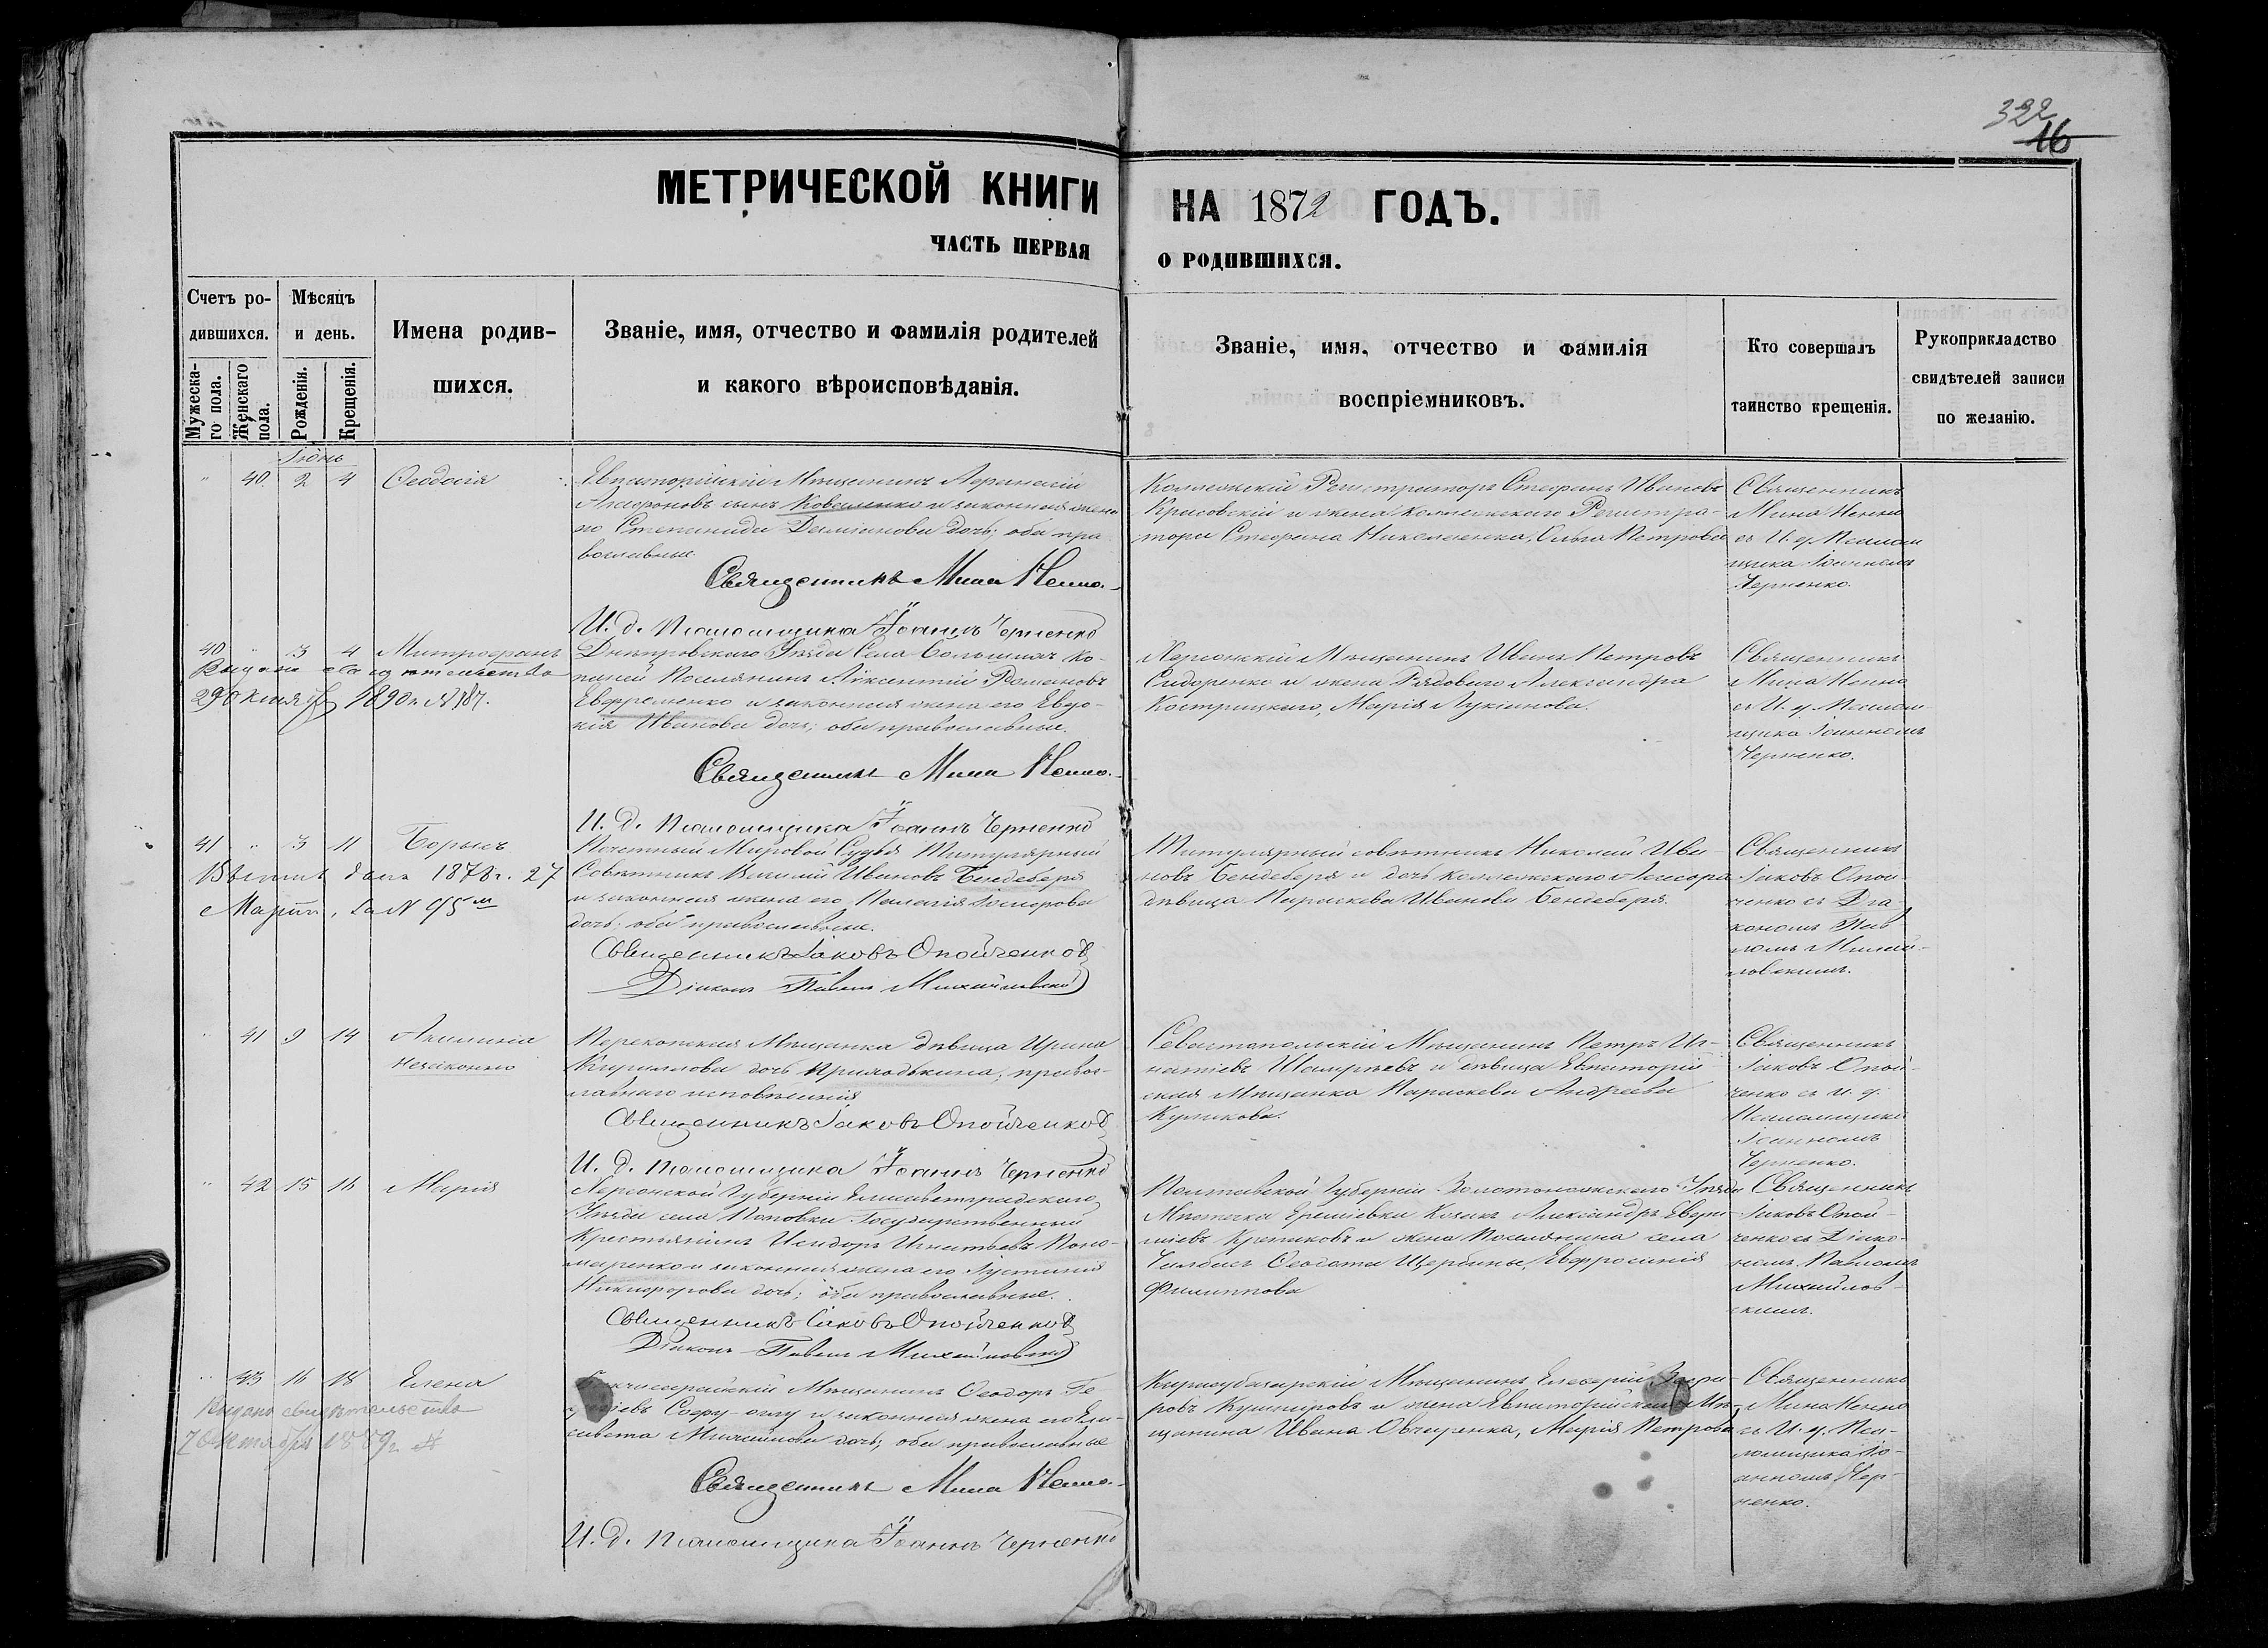 322
16
МЕТРИЧЕСКОЙ КНИГИ НА 1872 ГОДЪ.
ЧАСТЬ ПЕРВАЯ О РОДИВШИХСЯ.
Счетъ родившихся.
Мужескаго пола.
Женскаго пола.
Мѣсяцъ и день.
Рожденія.
Крещенія.
Имена родившихся.
Званіе, имя, отчество и фамилія родителей
и какого вѣроисповѣданія.
Званіе, имя, отчество и фамилія
воспріемниковъ.
Кто совершалъ
таинство крещенія.
Рукоприкладство
свидѣтелей записи
по желанію.
Іюнь
" 40. 2 4 Ѳеодосія
Евпаторійскій Мѣщанинъ
сынъ Коваленко и законная жена
его Степанида Даміанова дочь; оба пра
вославные.
Священникъ Мина Ненно.
И. д. Псаломщика Іоаннъ Черненко
Коллежскій Регистраторъ Стефанъ Ивановъ
и жена Коллежскаго Регистра-
тора Стефана Николаенка, Ольга Петрова
Священникъ
Мина Ненно
съ И. д. Псалом
щика Іоанномъ
Черненко.
40 " 3 4 Митрофанъ
Выдано свидѣтельство
29 Октября 1890 г. №
Днѣпровскаго Уѣзда Села Большихъ Ко-
паней Поселянинъ Аѵксентій Романовъ
Евфременко и законная жена его Евдо-
кія Иванова дочь; оба православные.
Священникъ Мина Ненно.
И. д. Псаломщика Іоаннъ Черненко
Херсонскій Мѣщанинъ Иванъ Петровъ
Сидоренко и жена Рядоваго Александра
Кострицкаго, Марія Лукіанова.
Священникъ
Мина Ненно
съ И. д. Псалом-
щика Іоанномъ
Черненко.
41 " 3 11 Борисъ
дана 1878 г. 27
Марта, за № 95 м
Почетный Мировой Судья Титулярный
Совѣтникъ Василій Ивановъ Бендебери
и законная жена его Пелагія
дочь; оба православные.
Священникъ Іаковъ Опойченков
Діаконъ Павелъ Михайловскій
Титулярный совѣтникъ Николай Ива-
новъ Бендебери и дочь коллежскаго Ассесора
дѣвица Параскева Иванова Бендебери.
Священникъ
Іаковъ Опой
ченко съ Діа-
кономъ Пав
ломъ Михай-
ловскимъ.
" 41 9 14 Акилина
незаконно
Перекопская Мѣщанка дѣвица Ирина
Кириллова дочь Приходькина; правос-
лавнаго исповѣданія
Священникъ Іаковъ Опойченков
И. д. Псаломщика Іоаннъ Черненко
Севастопольскій Мѣщанинъ Петръ Иг-
натіевъ и дѣвица Евпаторій-
ская Мѣщанка Параскева Андреева
Куликова.
Священникъ
Іаковъ Опой-
ченко съ и. д.
Псаломщика
Іоанномъ
Черненко.
" 42 15 16 Марія
Херсонской Губерніи Елисаветградскаго
Уѣзда села Поповки Государственный
Крестьянинъ Исидоръ Игнатьевъ Поно-
маренко и законная жена его Іустинія
Никифорова дочь; оба православные.
Священникъ Іаковъ Опойченков
Діаконъ Павелъ Михайловскій
Полтавской Губерніи Золотоношскаго Уѣзда
Мѣстечка Еремѣевки Козакъ Александръ
и жена Поселянина села
Ѳеодота Щербины, Евфросинія
Филиппова
Священникъ
Іаковъ Опой-
ченко съ Діако-
номъ Павломъ
Михайлов-
скимъ.
" 43 16 18 Елена
Выдано свидѣтельство
7 Октября 1889 г. №
Мѣщанинъ Ѳеодоръ Ге
и законная жена его Ели-
савета Михайлова дочь; оба православные
Священникъ Мина Ненно.
И. д. Псаломщика Іоаннъ Черненко
Карасубазарскій Мѣщанинъ Елевѳерій
Кушнировъ и жена Евпаторійскаго Мѣ-
щанина Ивана Овчаренка, Марія Петрова
Священникъ
Мина Ненно
съ И. д. Пса-
ломщика Іо-
анномъ Чер-
ненко.